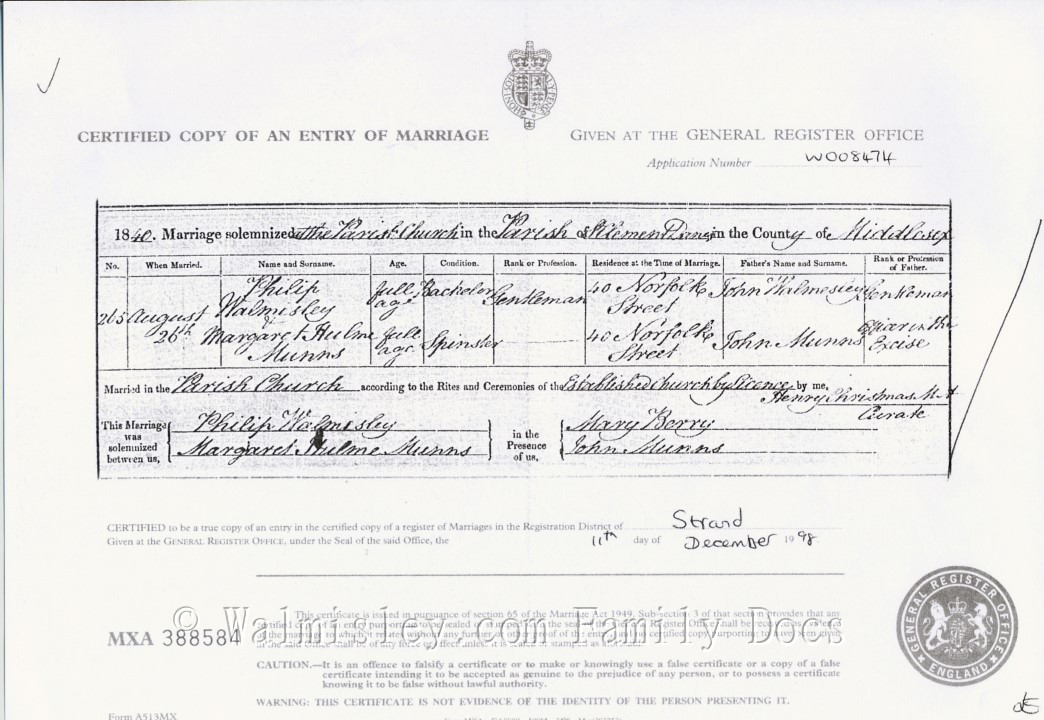 CERTIFIED COPY OF AN ENTRY OF MARRIAGE
GIVEN AT THE GENERAL REGISTER OFFICE
Application Number W008474
1840. Marriage solemnized at the Parish Church in the Parish of St Clement Danes in the County of Middlesex
No. When Married. Name and Surname. Age. Condition. Rank or Profession. Residence at the Time of Marriage. Father's Name and Surname. Rank or Profession of Father.
265 August 26th
Philip Walmisley full age Bachelor Gentleman 40 Norfolk Street John Walmesley Gentleman
&
Margaret Hulme Munns full age Spinster 40 Norfolk Street John Munns Officer in the Excise
Married in the Parish Church according to the Rites and Ceremonies of the Established Church by Licence by me,
Henry Christmas M.A
Curate
This Marriage was solemnized between us,
Philip Walmisley
Margaret Hulme Munns
in the Presence of us,
Mary Berry
John Munns
CERTIFIED to be a true copy of an entry in the certified copy of a register of Marriages in the Registration District of Strand
Given at the GENERAL REGISTER OFFICE, under the Seal of the said Office, the 11th day of December 1998
This certificate is issued in pursuance of section 65 of the Marriage Act 1949. Sub-section 3 of that section provides that any
MXA 388584
© Walmisley.com Family Docs
CAUTION.—It is an offence to falsify a certificate or to make or knowingly use a false certificate or a copy of a false
certificate intending it to be accepted as genuine to the prejudice of any person, or to possess a certificate
knowing it to be false without lawful authority.
WARNING: THIS CERTIFICATE IS NOT EVIDENCE OF THE IDENTITY OF THE PERSON PRESENTING IT.
GENERAL REGISTER OFFICE
ENGLAND
Form A513MX